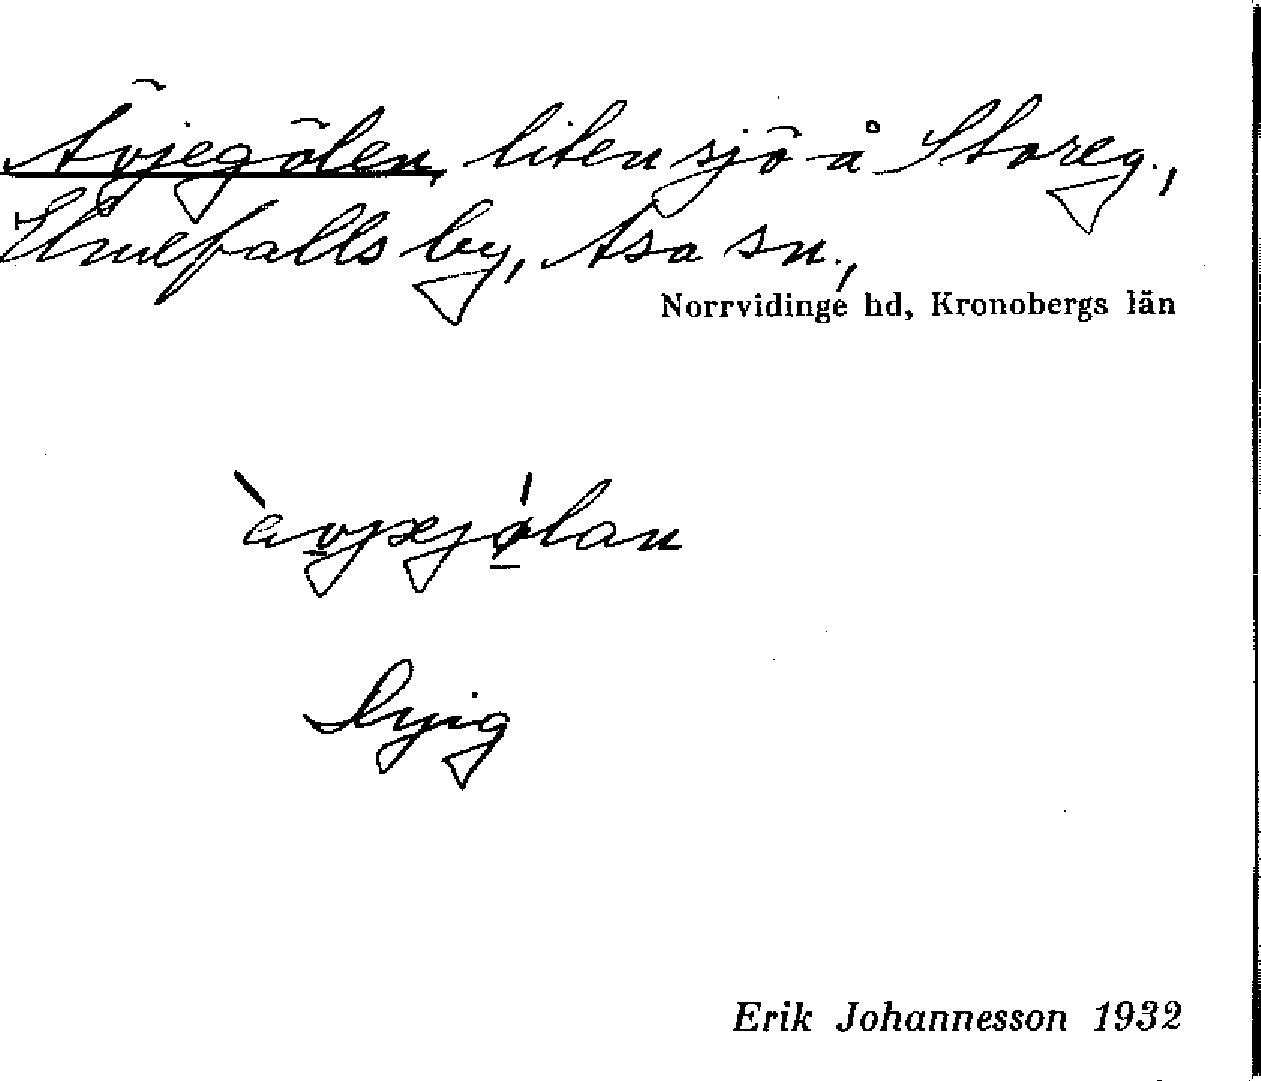 Ävjegölen, liten sjö å Storeg.,
by, Asa sn.,
Norrvidinge hd, Kronobergs län
dyig
Erik Johannesson 1932